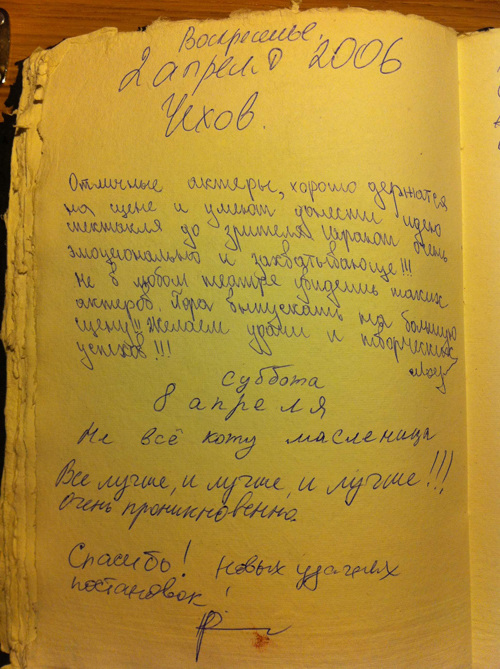 Воскресенье.
2 апреля 2006
Чехов.
Отличные актеры, хорошо держатся
на сцене и умеют донести идею
спектакля до зрителя. Играют очень
эмоционально и захватывающе!!!
Не в любом театре увидишь таких
актеров. Пора выпускать на большую
сцену!! Желаем удачи и творческих
успехов!!!
Суббота
8 апреля
Не всё коту масленица
Все лучше, и лучше, и лучше!!!
Очень проникновенно.
Спасибо! Новых удачных
постановок!